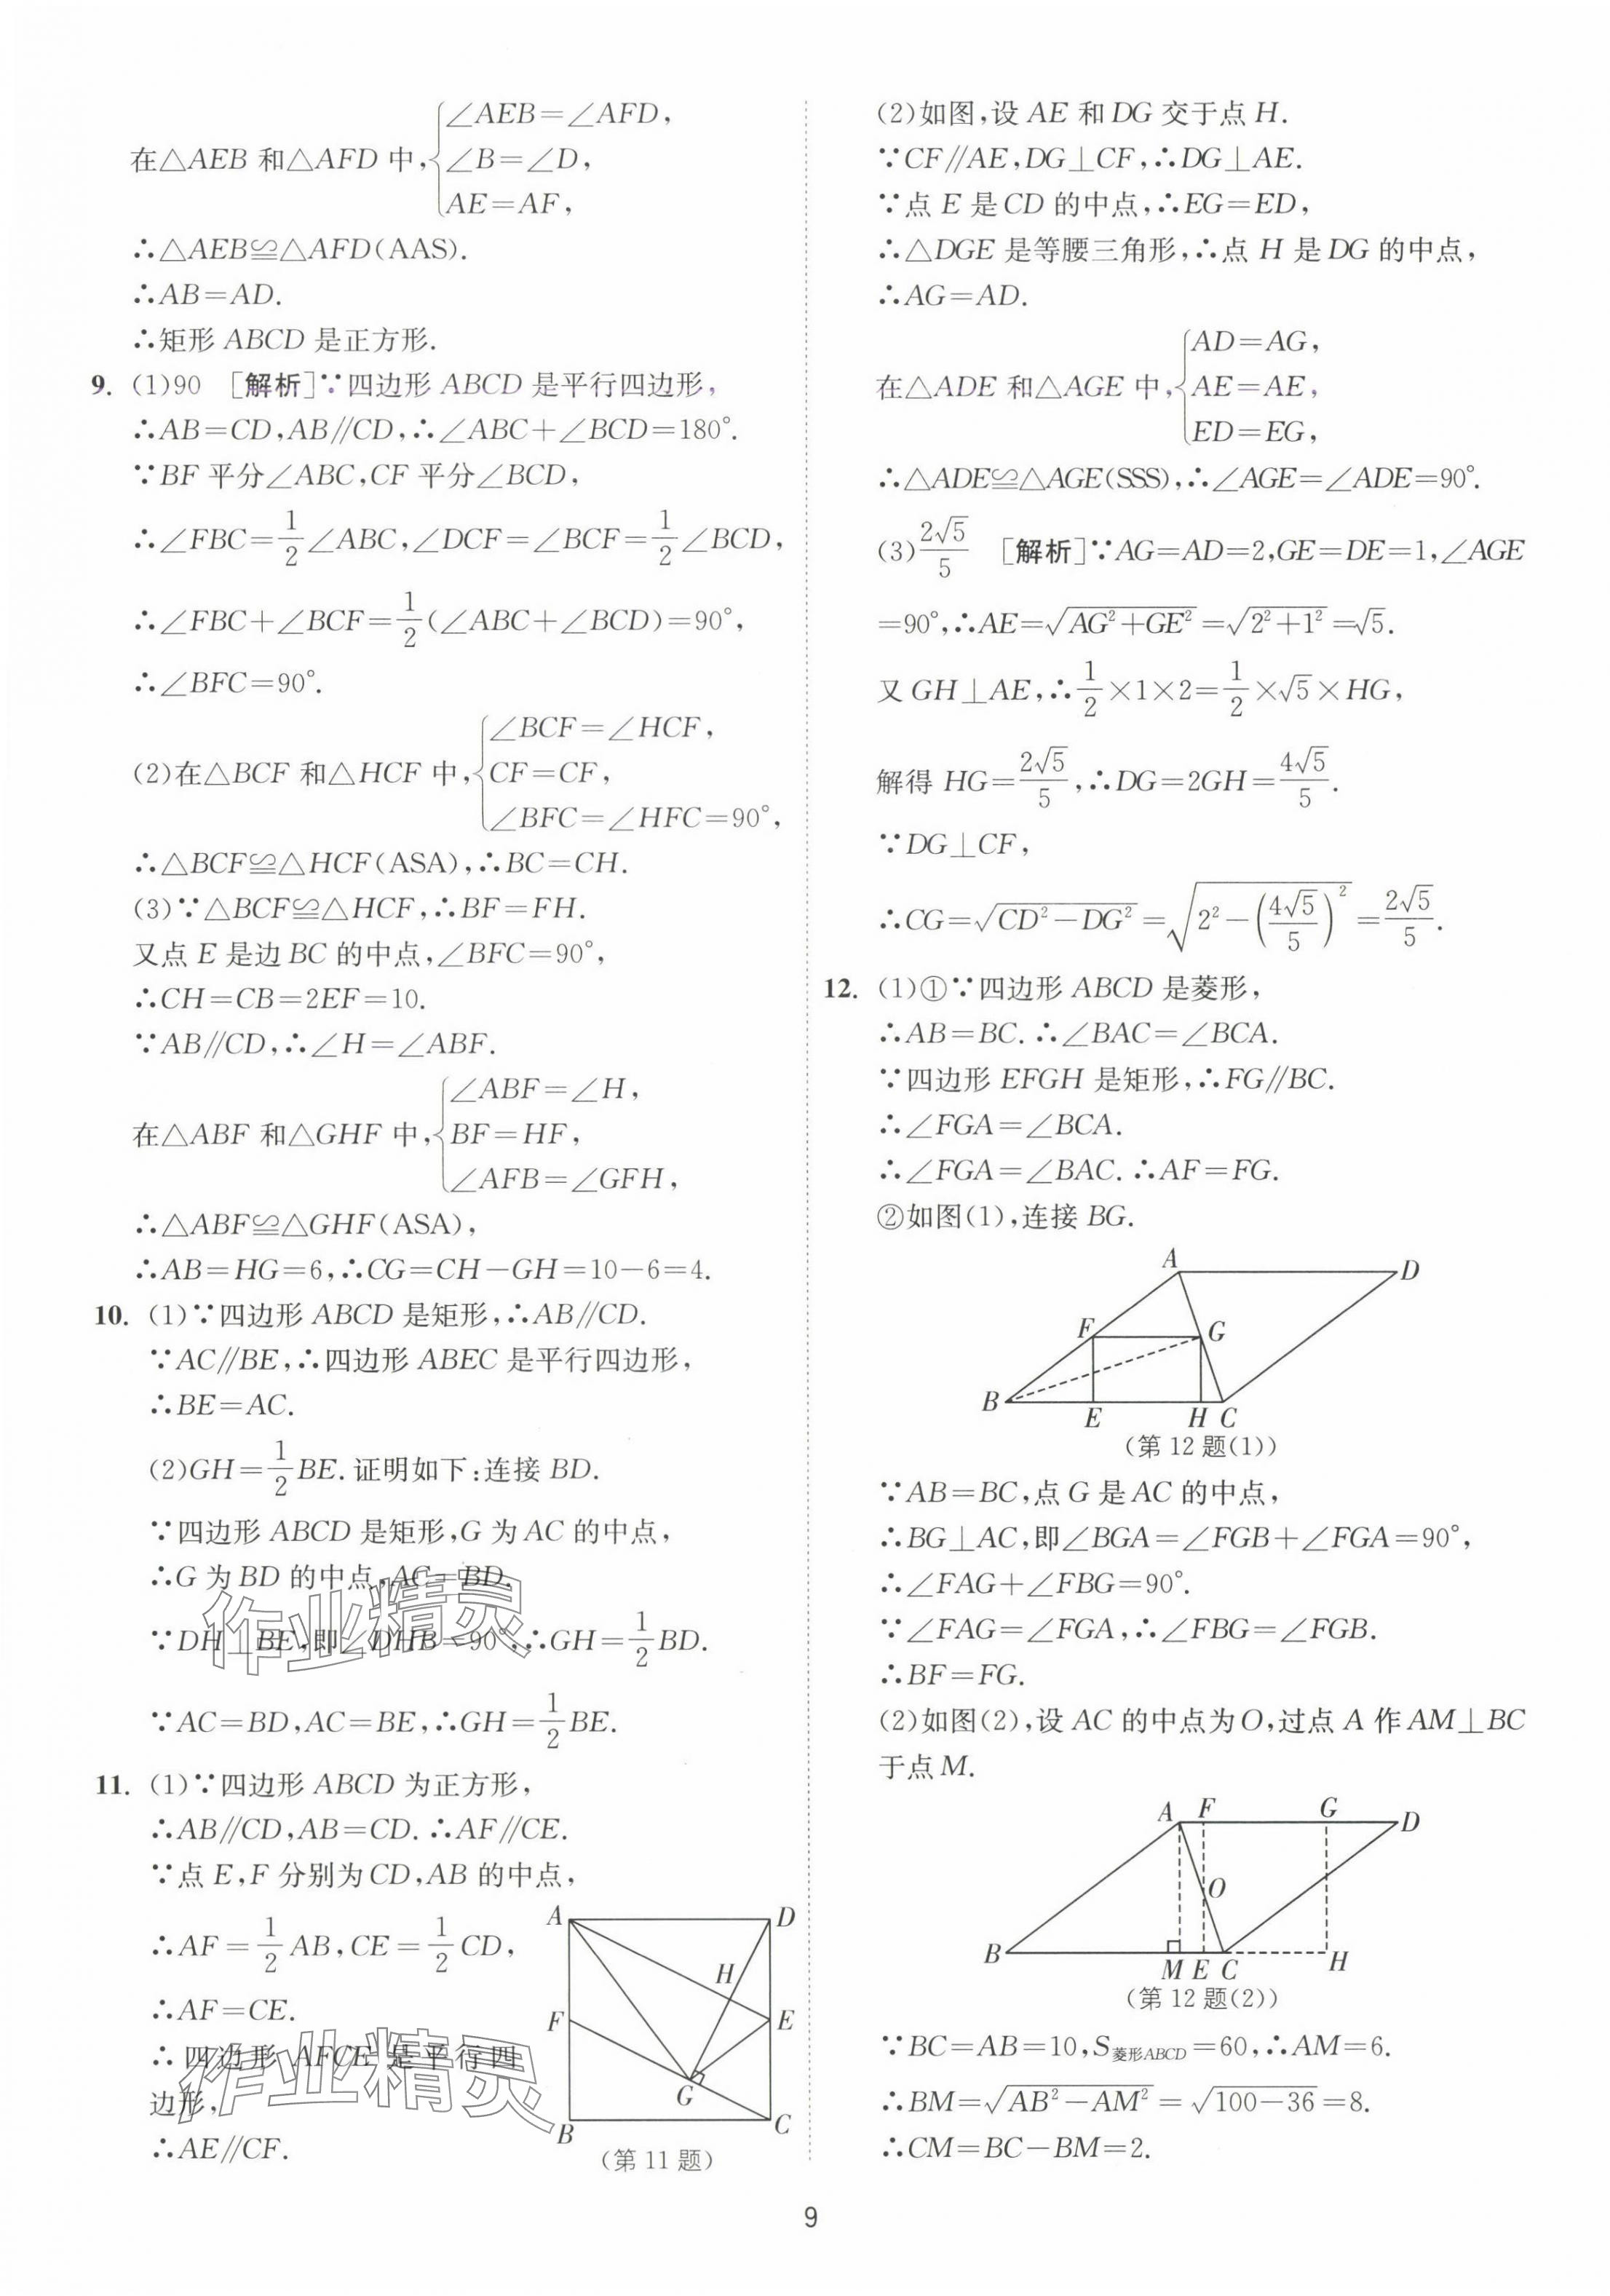 在△AEB 和△AFD 中,{∠AEB=∠AFD,
∠B=∠D,
AE=AF,
∴△AEB≌△AFD(AAS).
∴AB=AD.
∴矩形 ABCD 是正方形.
9. (1)90 [解析]∵四边形 ABCD 是平行四边形,
∴AB=CD,AB∥CD,∴∠ABC+∠BCD=180°.
∵BF 平分∠ABC,CF 平分∠BCD,
∴∠FBC=1/2∠ABC,∠DCF=∠BCF=1/2∠BCD,
∴∠FBC+∠BCF=1/2(∠ABC+∠BCD)=90°,
∴∠BFC=90°.
(2)在△BCF 和△HCF 中,{∠BCF=∠HCF,
CF=CF,
∠BFC=∠HFC=90°,
∴△BCF≌△HCF(ASA),∴BC=CH.
(3)∵△BCF≌△HCF,∴BF=FH.
又点 E 是边 BC 的中点,∠BFC=90°,
∴CH=CB=2EF=10.
∵AB∥CD,∴∠H=∠ABF.
在△ABF 和△GHF 中,{∠ABF=∠H,
BF=HF,
∠AFB=∠GFH,
∴△ABF≌△GHF(ASA),
∴AB=HG=6,∴CG=CH-GH=10-6=4.
10. (1)∵四边形 ABCD 是矩形,∴AB∥CD.
∵AC∥BE,∴四边形 ABEC 是平行四边形,
∴BE=AC.
(2)GH=1/2BE.证明如下:连接 BD.
∵四边形 ABCD 是矩形,G 为 AC 的中点,
∴G 为 BD 的中点,AC=BD.
∵DH⊥BE,即∠DHB=90°,∴GH=1/2BD.
∵AC=BD,AC=BE,∴GH=1/2BE.
11. (1)∵四边形 ABCD 为正方形,
∴AB∥CD,AB=CD.∴AF∥CE.
∵点 E,F 分别为 CD,AB 的中点,
∴AF=1/2AB,CE=1/2CD,
∴AF=CE.
∴四边形 AFCE 是平行四
边形,
∴AE∥CF.
A
D
H
F
E
G
B
C
(第 11 题)
作业精灵
作业精灵
(2)如图,设 AE 和 DG 交于点 H.
∵CF∥AE,DG⊥CF,∴DG⊥AE.
∵点 E 是 CD 的中点,∴EG=ED,
∴△DGE 是等腰三角形,∴点 H 是 DG 的中点,
∴AG=AD.
在△ADE 和△AGE 中,{AD=AG,
AE=AE,
ED=EG,
∴△ADE≌△AGE(SSS),∴∠AGE=∠ADE=90°.
(3)2√5/5 [解析]∵AG=AD=2,GE=DE=1,∠AGE
=90°,∴AE=√(AG²+GE²)=√(2²+1²)=√5.
又 GH⊥AE,∴1/2×1×2=1/2×√5×HG,
解得 HG=2√5/5,∴DG=2GH=4√5/5.
∵DG⊥CF,
∴CG=√(CD²-DG²)=√(2²-(4√5/5)²)=2√5/5.
12. (1)①∵四边形 ABCD 是菱形,
∴AB=BC.∴∠BAC=∠BCA.
∵四边形 EFGH 是矩形,∴FG∥BC.
∴∠FGA=∠BCA.
∴∠FGA=∠BAC.∴AF=FG.
②如图(1),连接 BG.
A
D
F
G
B
E
H
C
(第 12 题(1))
∵AB=BC,点 G 是 AC 的中点,
∴BG⊥AC,即∠BGA=∠FGB+∠FGA=90°,
∴∠FAG+∠FBG=90°.
∵∠FAG=∠FGA,∴∠FBG=∠FGB.
∴BF=FG.
(2)如图(2),设 AC 的中点为 O,过点 A 作 AM⊥BC
于点 M.
A
F
G
D
O
B
M
E
C
H
(第 12 题(2))
∵BC=AB=10,S菱形ABCD=60,∴AM=6.
∴BM=√(AB²-AM²)=√(100-36)=8.
∴CM=BC-BM=2.
9